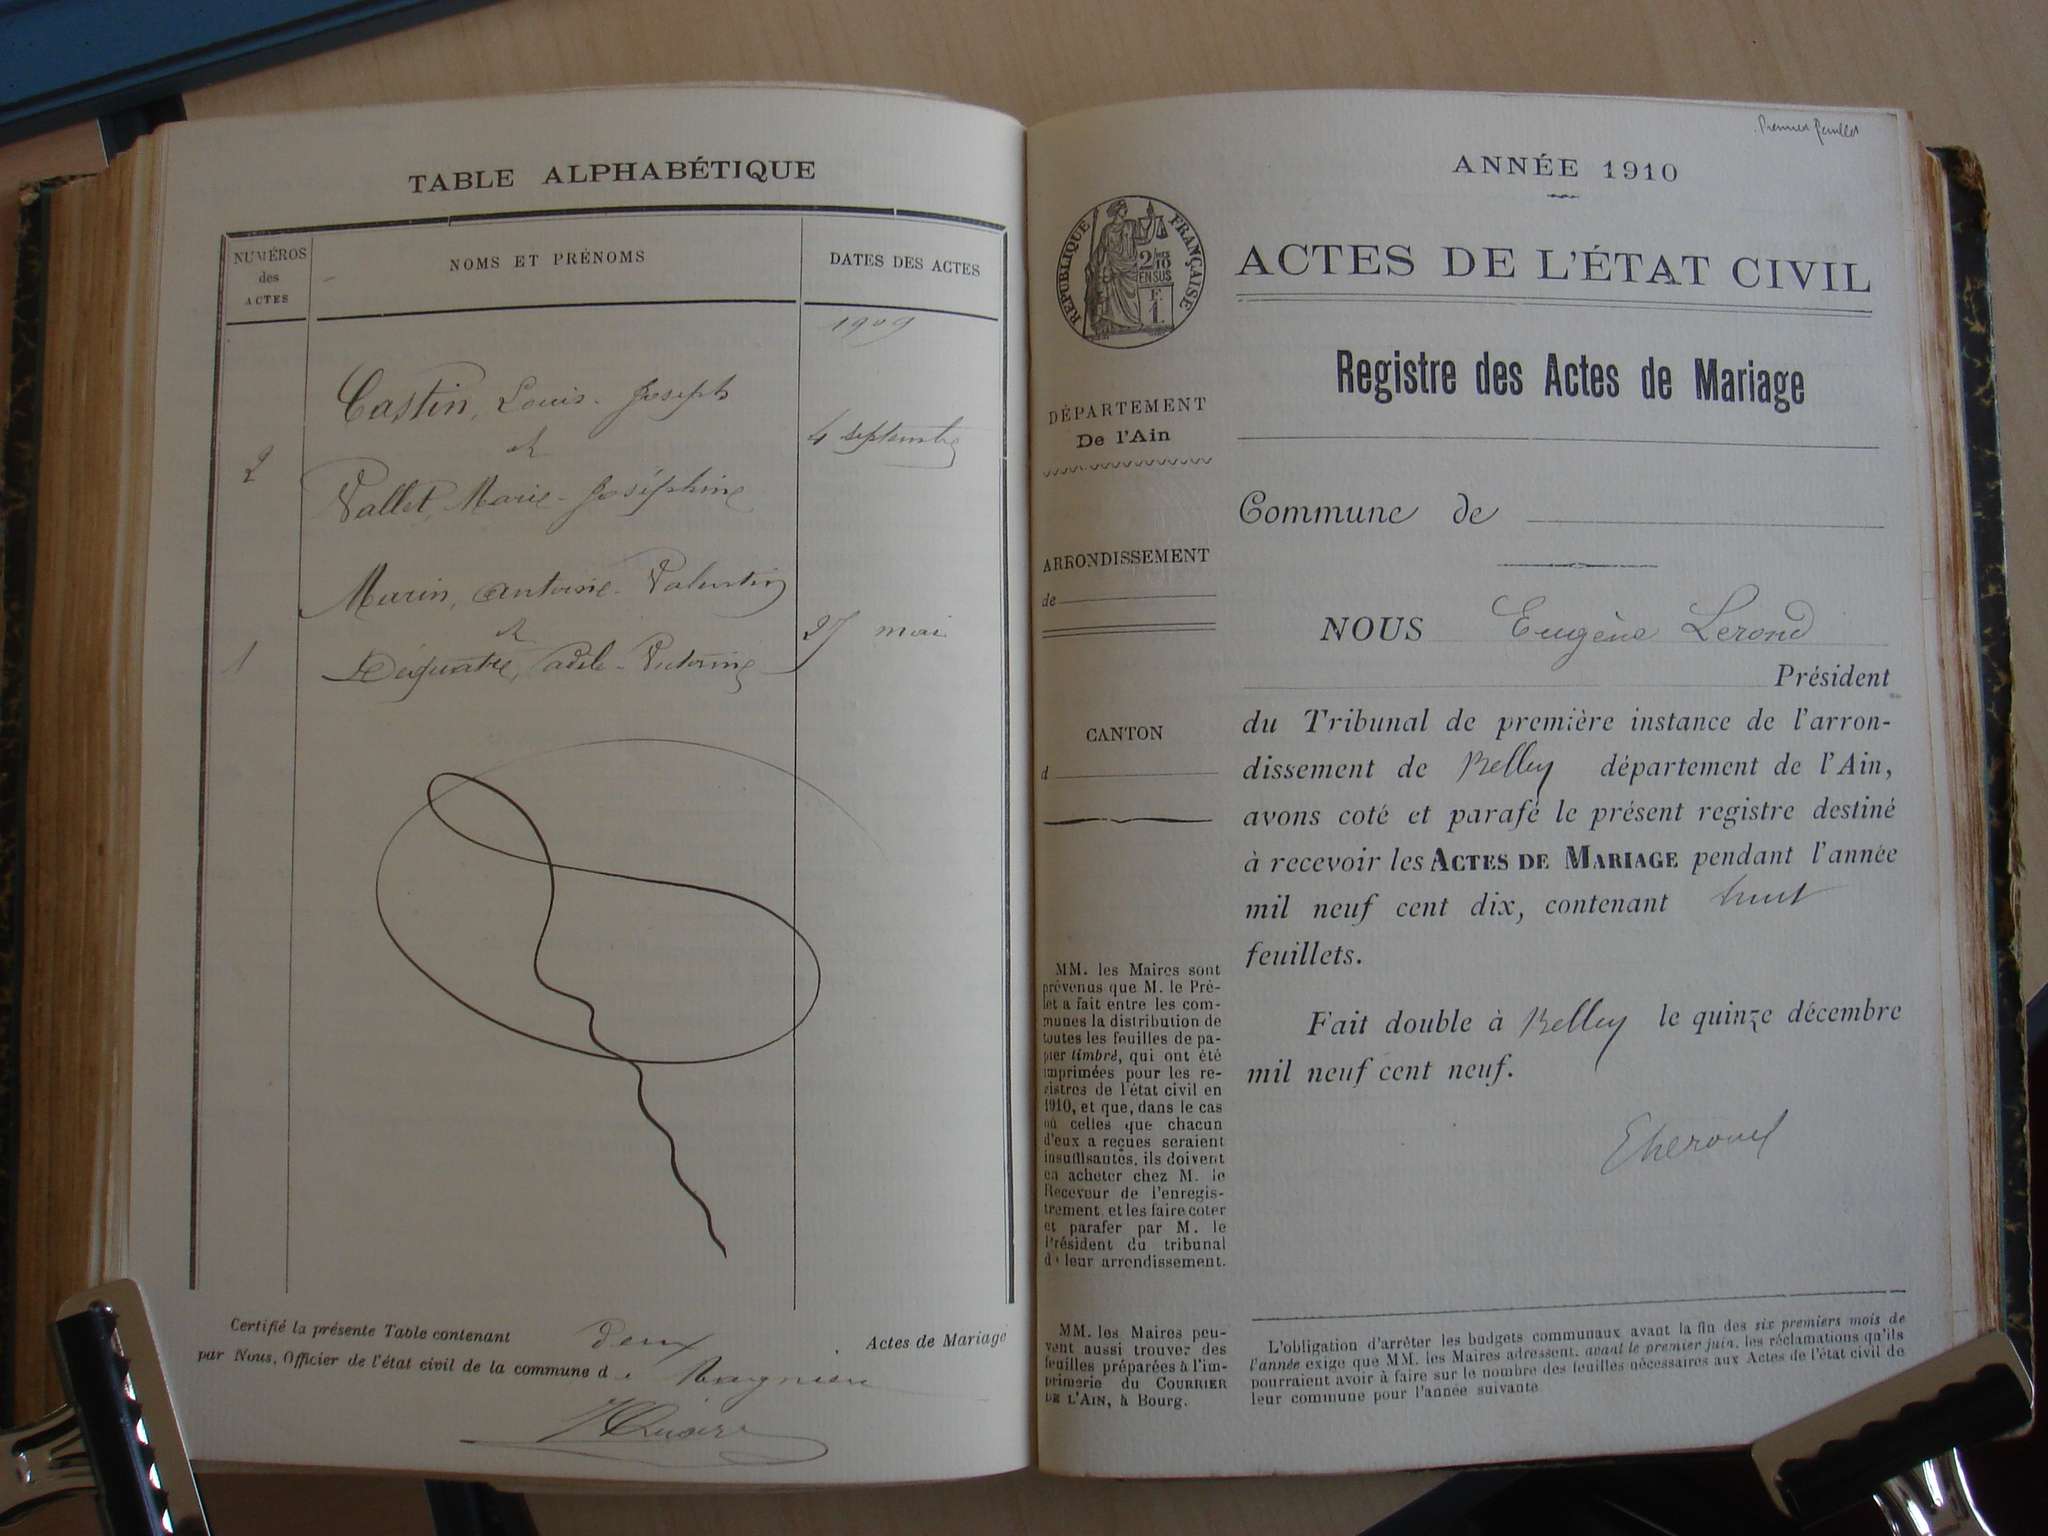 TABLE ALPHABÉTIQUE
NUMÉROS
des
ACTES
NOMS ET PRÉNOMS
DATES DES ACTES
1909
Castin, Louis-Joseph
et
4 septembre
2
Vallet, Marie-Joséphine
Marin, Antoine-Valentin
et
27 mai
1
Déquatre, Adèle-Victorine
Certifié la présente Table contenant deux Actes de Mariage
par Nous, Officier de l'état civil de la commune d
Premier feuillet
ANNÉE 1910
RÉPUBLIQUE FRANÇAISE
2/10
EN SUS
F.
1
ACTES DE L'ÉTAT CIVIL
Registre des Actes de Mariage
DÉPARTEMENT
De l'Ain
Commune de
ARRONDISSEMENT
de
NOUS Eugène Lerond
Président
CANTON
d
du Tribunal de première instance de l'arron-
dissement de Belley département de l'Ain,
avons coté et parafé le présent registre destiné
à recevoir les ACTES DE MARIAGE pendant l'année
mil neuf cent dix, contenant huit
feuillets.
Fait double à Belley le quinze décembre
mil neuf cent neuf.
MM. les Maires sont
prévenus que M. le Pré-
fet a fait entre les com-
munes la distribution de
toutes les feuilles de pa-
pier timbré, qui ont été
imprimées pour les re-
gistres de l'état civil en
1910, et que, dans le cas
où celles que chacun
d'eux a reçues seraient
insuffisantes, ils doivent
en acheter chez M. le
Receveur de l'enregis-
trement et les faire coter
et parafer par M. le
Président du tribunal
de leur arrondissement.
MM. les Maires peu-
vent aussi trouver des
feuilles préparées à l'im-
primerie du COURRIER
DE L'AIN, à Bourg.
L'obligation d'arrêter les budgets communaux avant la fin des six premiers mois de
l'année exige que MM. les Maires adressent, avant le premier juin, les réclamations qu'ils
pourraient avoir à faire sur le nombre des feuilles nécessaires aux Actes de l'état civil de
leur commune pour l'année suivante